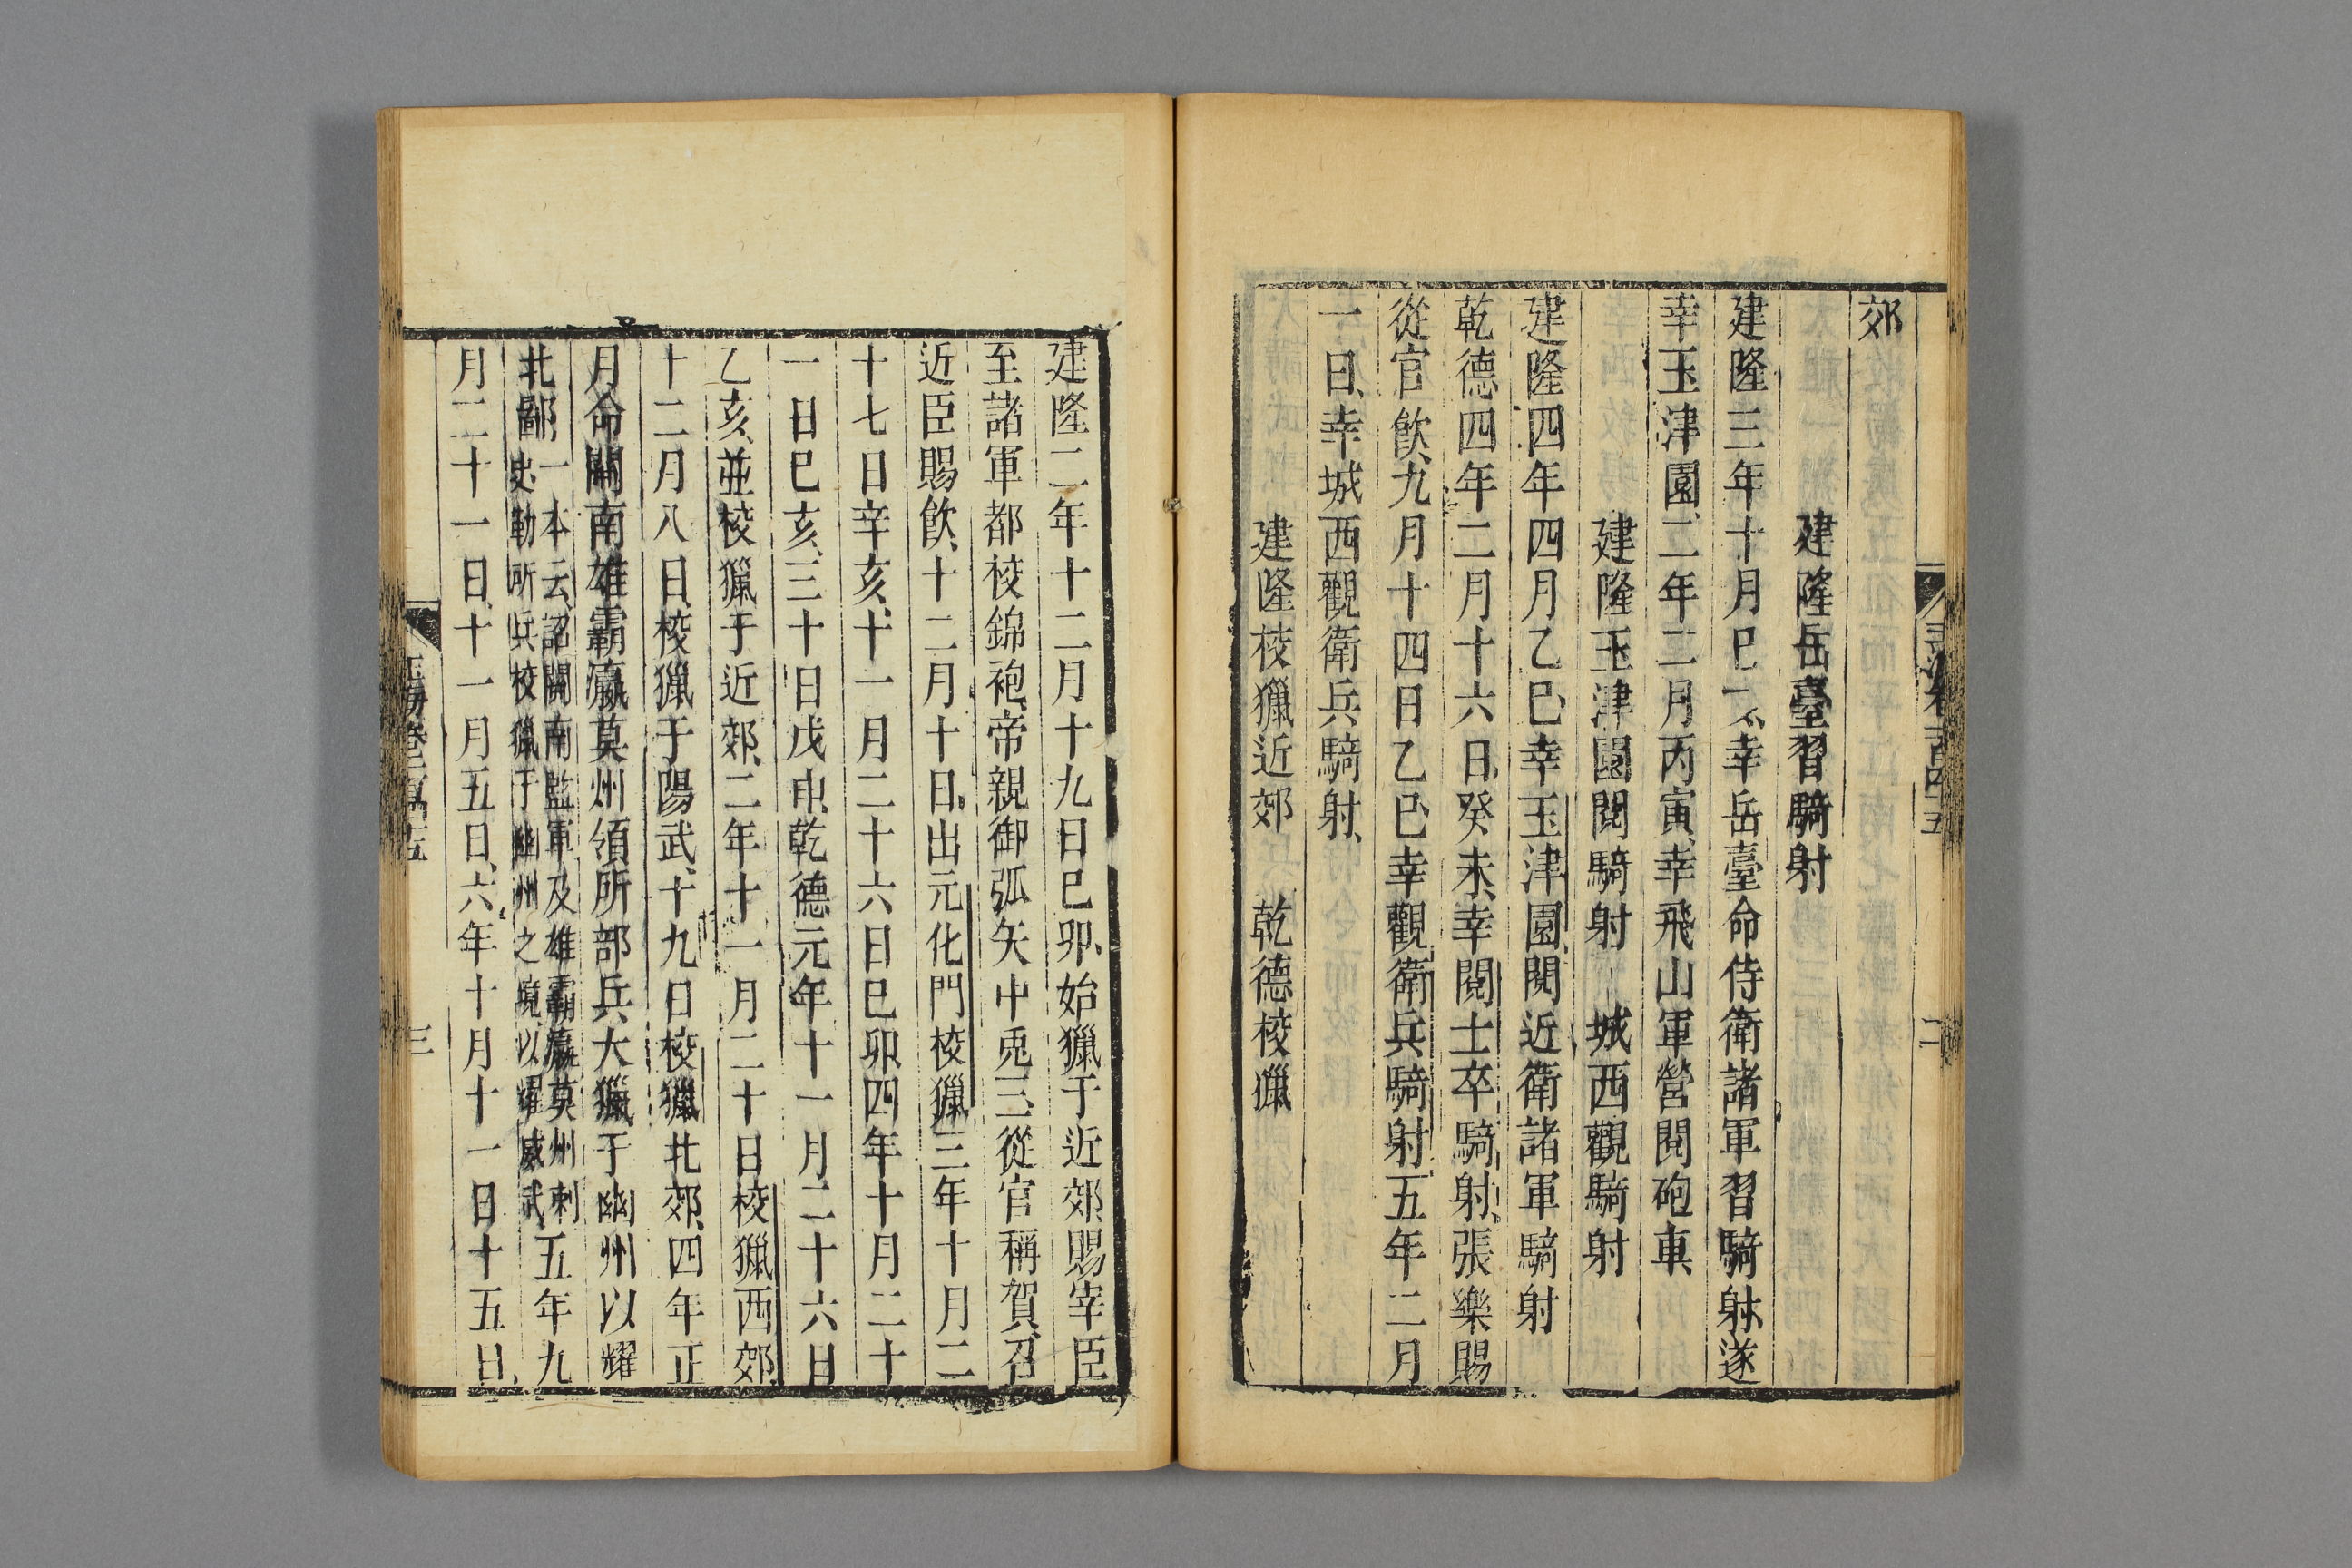 郊
建隆岳臺習騎射
建隆三年十月巳一幸岳臺命侍衛諸軍習騎射遂
幸玉津園二年二月丙寅幸飛山軍營閱砲車
建隆玉津園閱騎射 城西觀騎射
建隆四年四月乙巳幸玉津園閱近衛諸軍騎射
乾德四年二月十六日癸未幸閱士卒騎射張樂賜
從官飲九月十四日乙巳幸觀衛兵騎射五年二月
一日幸城西觀衛兵騎射
建隆校獵近郊 乾德校獵
建隆二年十二月十九日巳卯始獵于近郊賜宰臣
至諸軍都校錦袍帝親御弧矢中兎三從官稱賀召
近臣賜飲十二月十日出元化門校獵三年十月二
十七日辛亥十一月二十六日巳卯四年十月二十
一日巳亥三十日戊申乾德元年十一月二十六日
乙亥並校獵于近郊二年十一月二十日校獵西郊
十二月八日校獵于陽武十九日校獵北郊四年正
月命關南雄霸瀛莫州領所部兵大獵于幽州以耀
北鄙一本云詔關南監軍及雄霸瀛莫州刺史勒所兵校獵于幽州之境以耀威武五年九
月二十一日十一月五日六年十月十一日十五日
三